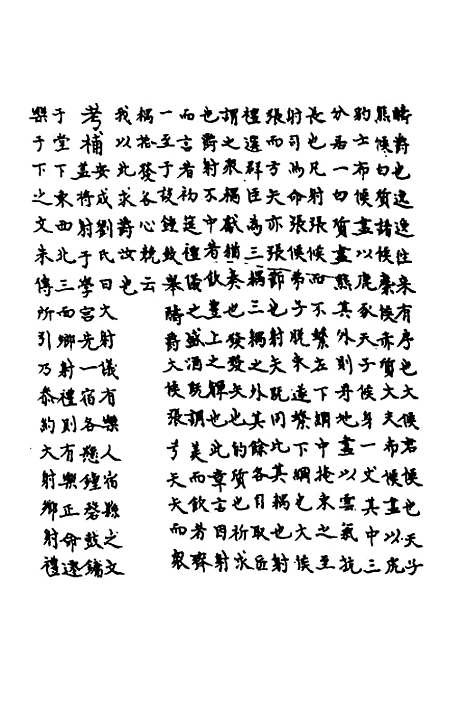 疇爵也逸逸往來有序也大侯君侯也天子
熊侯白質諸侯麋侯赤質大夫布侯畫以虎
豹士布侯畫以鹿豕天子侯身一丈其中三
分君一白質畫熊其外則丹地畫以雲氣抗
張也凡射張侯而不繫左下綱中掩束之至
射司馬命張侯弟子脫束遂繫下綱也大侯
張而弓矢亦張節也射夫既同比其禍也射
禮選群臣為三禍三禍之外其餘各自取匹
謂之衆禍獻猶奏也發發矢也的質也祈求
也爵射不中者飲豊上之觶也此章言因射
而言者初筵禮儀之盛酒既調美而飲者齊
一至于設鍾鼓舉疇爵大侯張弓矢而衆
禍拾發各心競云
我以此求爵汝也
考補安成劉氏曰大射儀樂人宿縣之文
蓋將射于學宮先射一宿各懸鍾磬鼓鏞
于堂下東西北三面鄉射禮則有樂正命遷
樂于下之文朱傳所引乃叅約大射鄉射禮